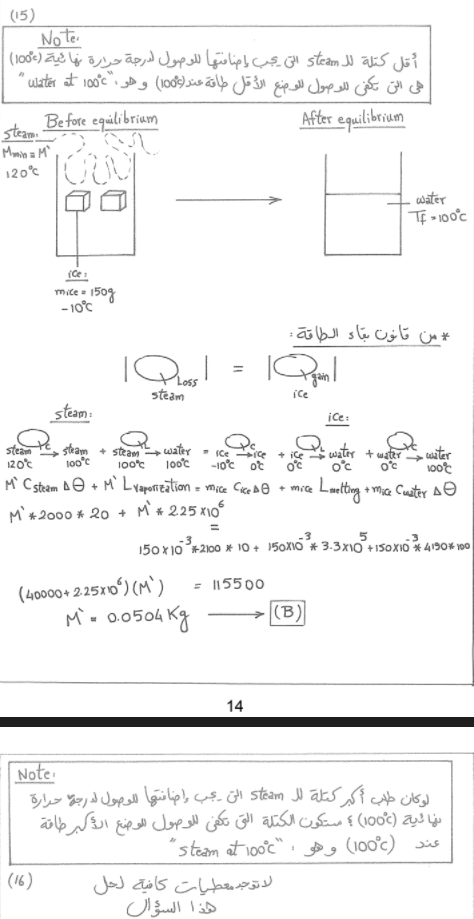 (15)
Note:
أقل كتلة للـ steam التى يجب إضافتها للوصول لدرجة حرارة نهائية (100°c)
هى التى تكفى للوصول للوضع الأقل طاقة عند (100°c) وهو: "water at 100°c"
Before equilibrium
After equilibrium
steam:
Mmin = M`
120°c
water
Tf = 100°c
ice:
mice = 150g
-10°c
* من قانون بقاء الطاقة:
|Q Loss| = |Q gain|
steam ice
steam: ice:
Qc QL Qc QL Qc
steam → steam + steam → water = ice → ice + ice → water + water → water
120°c 100°c 100°c 100°c -10°c 0°c 0°c 0°c 0°c 100°c
M` Csteam ΔΘ + M` Lvaporization = mice Cice ΔΘ + mice Lmelting + mice Cwater ΔΘ
M` * 2000 * 20 + M` * 2.25x10⁶
=
150x10⁻³ * 2100 * 10 + 150x10⁻³ * 3.3x10⁵ + 150x10⁻³ * 4190 * 100
(40000 + 2.25x10⁶)(M`) = 115500
M` = 0.0504 Kg → (B)
14
Note:
لو كان طلب أكبر كتلة للـ steam التى يجب إضافتها للوصول لدرجة حرارة
نهائية (100°c) ؟ ستكون الكتلة التى تكفى للوصول للوضع الأكبر طاقة
عند (100°c) وهو: "steam at 100°c"
(16) لا توجد معطيات كافية لحل
هذا السؤال